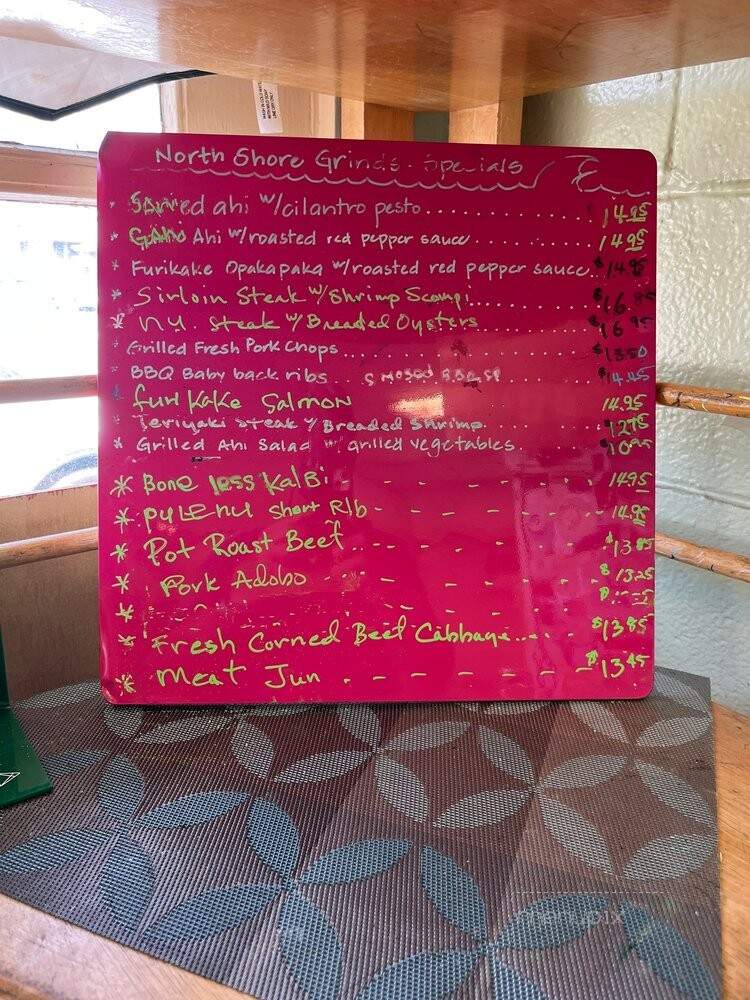 North Shore Grinds. Specials
ahi w/cilantro pesto 1495
* Ahi w/roasted red pepper sauce 1495
* Furikake Opakapaka w/roasted red pepper sauce $14.95
* Sirloin Steak w/Shrimp Scampi $16.95
* N.Y. Steak w/Breaded Oysters $16.95
Grilled Fresh Pork Chops $13.50
* BBQ Baby back ribs
* furi kake Salmon 14.95
* Teriyaki Steak w/ Breaded Shrimp
* Grilled Ahi Salad w/ grilled vegetables
* Bone less KalBi 1495
* short RIb 14.95
* Pot Roast Beef $13.85
* Pork Adobo $13.25
*
* Fresh Corned Beef Cabbage $13.85
* Meat Jun $13.45
menupix